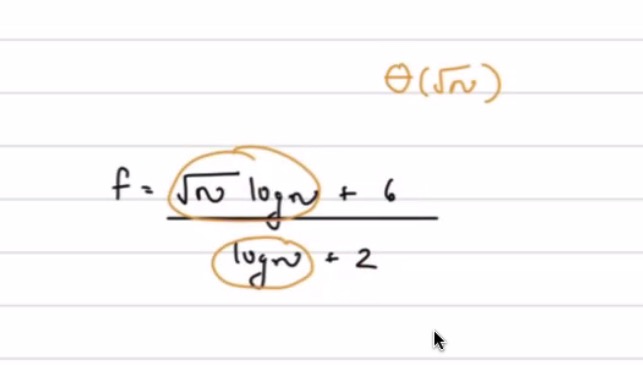 θ(√n)
f = √n logn + 6
logn + 2